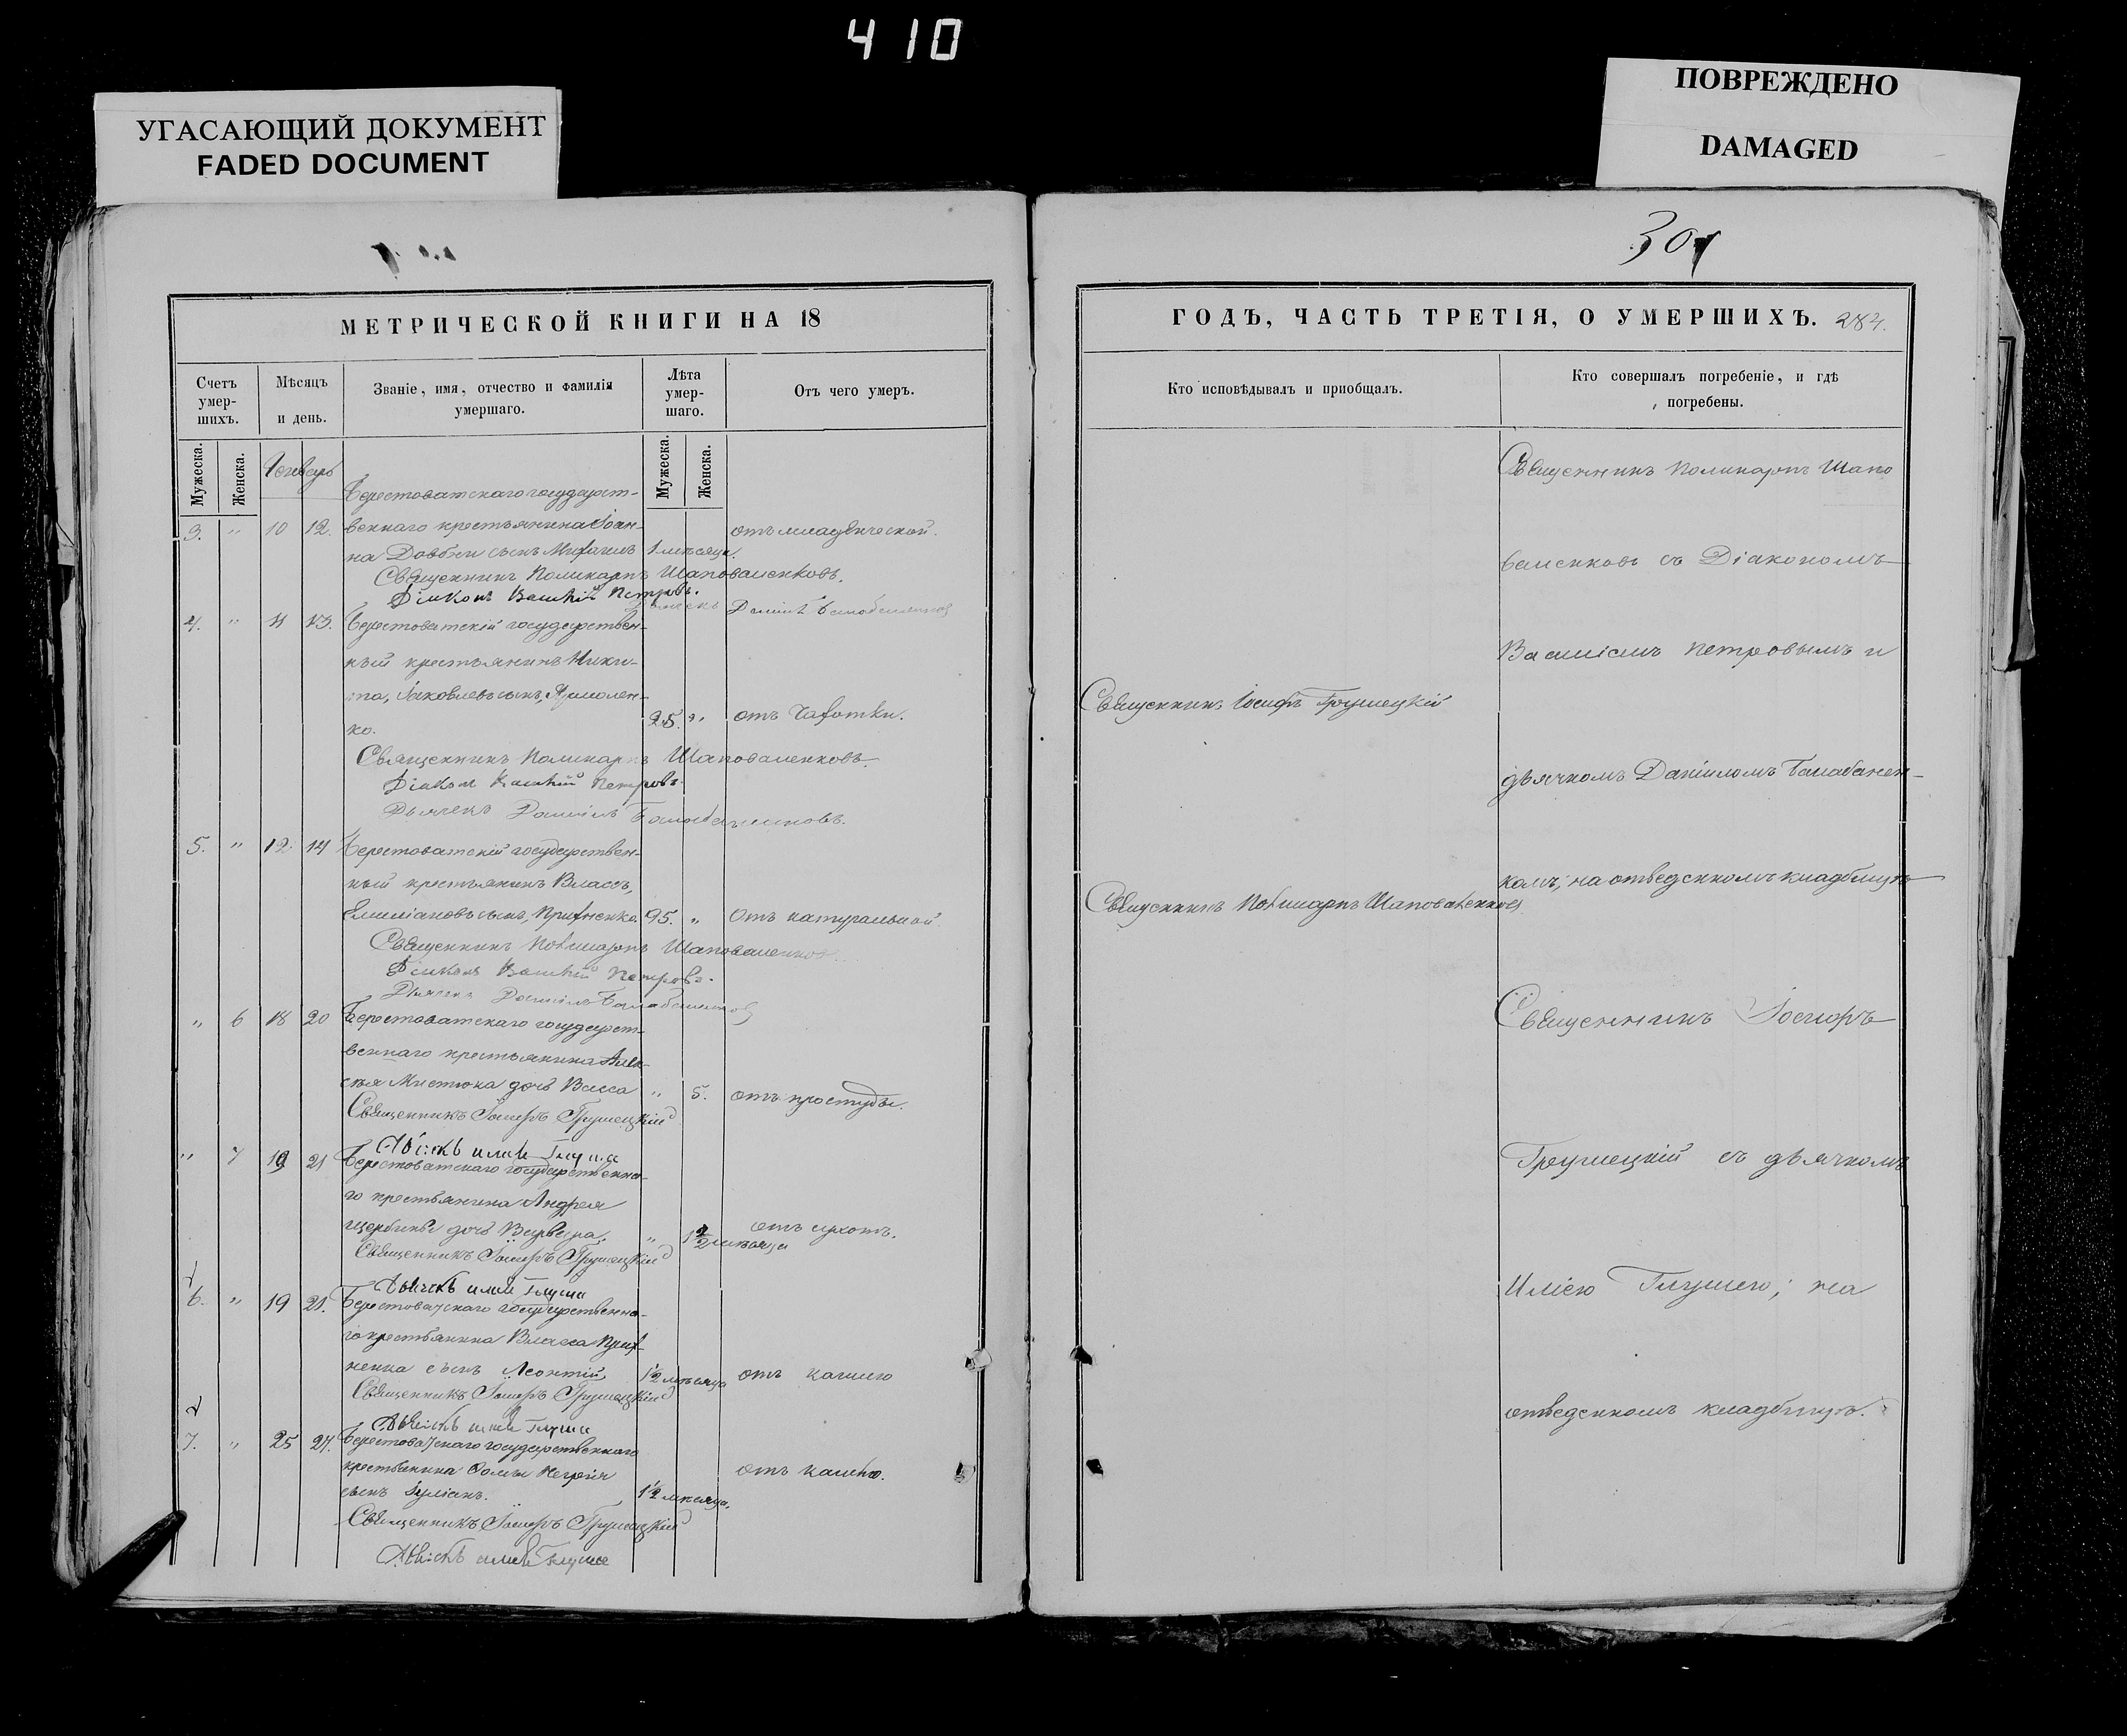 410
УГАСАЮЩИЙ ДОКУМЕНТ
FADED DOCUMENT
ПОВРЕЖДЕНО
DAMAGED
МЕТРИЧЕСКОЙ КНИГИ НА 18
Счетъ умер-шихъ.
Мѣсяцъ и день.
Званіе, имя, отчество и фамилія умершаго.
Лѣта умер-шаго.
Отъ чего умеръ.
Мужеска.
Женска.
Мужеска.
Женска.
Январь
Берестоватскаго государст-
3. " 10 12. веннаго крестьянина Іоан- отъ младенческой.
на Довбни сынъ Михаилъ 1 мѣсяца.
Священникъ Поликарпъ Шаповаленковъ.
Діаконъ Василій Петровъ.
Дьячекъ Даніилъ
4. " 11 13. Берестоватскій государствен-
ный крестьянинъ Ники-
та, Іаковлевъ сынъ, Ярмолен-
ко. 25. " отъ чахотки.
Священникъ Поликарпъ Шаповаленковъ.
Діаконъ Василій Петровъ.
Дьячекъ Даніилъ
5. " 12. 14 Берестоватскій государствен-
ный крестьянинъ Власъ,
Емиліановъ сынъ, 95. " Отъ натуральной.
Священникъ Поликарпъ Шаповаленковъ
Діаконъ Василій Петровъ.
Дьячекъ Даніилъ
" 6 18 20 Берестоватскаго государст-
веннаго крестьянина Алек-
сѣя дочь Васса " 5. отъ простуды.
Священникъ Іосифъ Грушецкій
Дьячекъ Илія Глуша
" 7 19 21 Берестоватскаго государственна-
го крестьянина Андрея
Щербины дочь Варвара. " 1 1/2 мѣсяца отъ сухотъ.
Священникъ Іосифъ Грушецкій
Дьячекъ Илія Глуша
6. " 19 21. Берестоватскаго государственна-
го крестьянина Власа
ненка сынъ Леонтій 1 1/2 мѣсяца отъ кашлю
Священникъ Іосифъ Грушецкій
Дьячекъ Илія Глуша
7. " 25 27. Берестоватскаго государственнаго
крестьянина Ѳомы отъ кашлю.
сынъ Іуліанъ. 1 1/2 мѣсяца.
Священникъ Іосифъ Грушецкій
Дьячекъ Илія Глуша
ГОДЪ, ЧАСТЬ ТРЕТІЯ, О УМЕРШИХЪ. 284.
Кто исповѣдывалъ и пріобщалъ.
Кто совершалъ погребеніе, и гдѣ погребены.
Священникъ Поликарпъ Шапо
валенковъ съ Діакономъ
Василіемъ Петровымъ и
Священникъ Іосифъ Грушецкій
дьячкомъ Даніиломъ Балабанен-
комъ; на отведенномъ кладбищѣ
Священникъ Поликарпъ Шаповаленковъ
Священникъ Іосифъ
Грушецкій съ дьячкомъ
Иліею Глушею; на
отведенномъ кладбищѣ.